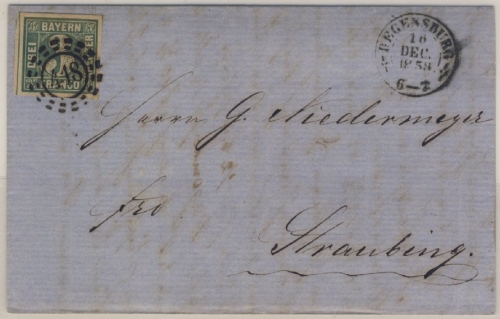 BAYERN
DREI
FRANCO
REGENSBURG
16
DEC.
1858
6–7
Herrn G. Niedermeyer
Fro
Straubing.